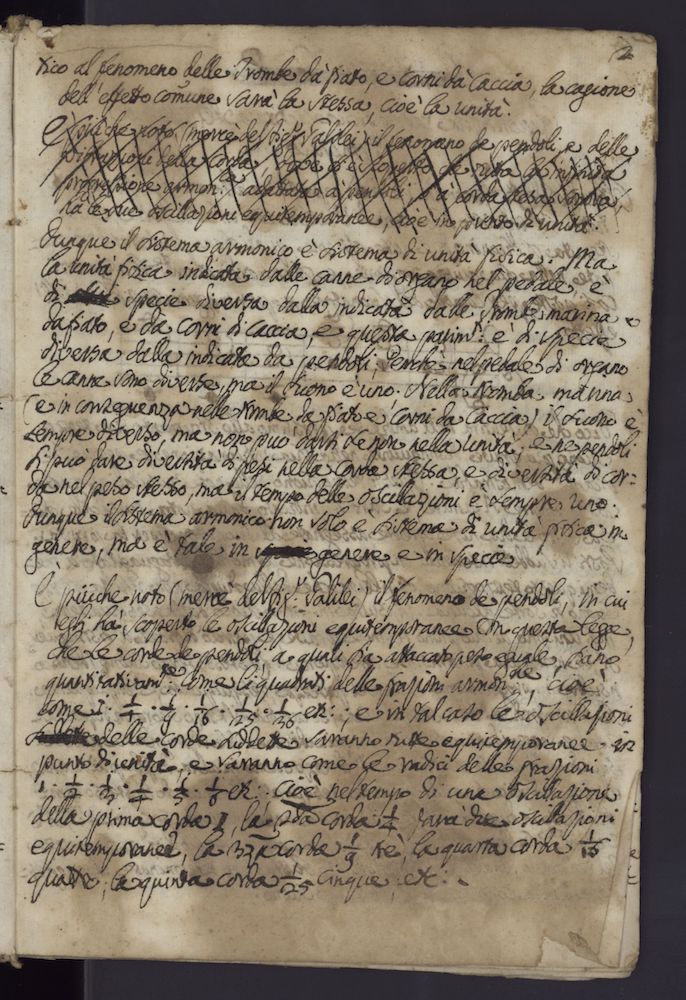 2
tico al fenomeno delle Trombe da fiato, e Corni da Caccia, la cagione
dell'effetto comune sarà la stessa, cioè la unità.
È più che noto (mercè del Sigr. Galilei) il fenomeno de pendoli, e delle
della corda
progressione armon: a pendoli,
le sue oscillazioni equitemporanee, cioè in punto di unità.
Dunque il sistema armonico è sistema di unità fisica. Ma
la unità fisica indicata dalle canne di organo nel pedale è
di specie diversa dalla indicata dalle Trombe marina e
da fiato, e da Corni di Caccia, e questa parimte: è di specie
diversa dalla indicata da pendoli; perchè nel pedale di organo
le canne sono diverse, ma il suono è uno. Nella Tromba marina
(e in conseguenza nelle Trombe da fiato e Corni da Caccia) il suono è
sempre diverso, ma non può darsi se non nella unità; e ne pendoli
si può dare diversità di pesi nella corda stessa, e diversità di cor-
da nel peso stesso, ma il tempo delle oscillazioni è sempre uno.
Dunque il sistema armonico non solo è sistema di unità fisica in
genere, ma è tale in genere e in specie.
È più che noto (mercè del Sigr. Galilei) il fenomeno de pendoli, in cui
egli ha scoperto le oscillazioni equitemporanee in questa legge,
che le corde de pendoli, a quali sia attaccato peso eguale, siano
quantitativamte: come li quadrati delle frazioni armoniche, cioè
come 1 · 1/4 · 1/9 · 1/16 · 1/25 · 1/36 etc:; e in tal caso le oscillazioni
delle corde suddette saranno tutte equitemporanee in
punto di unità, e saranno come le radici delle frazioni
1 · 1/2 · 1/3 · 1/4 · 1/5 · 1/6 etc: cioè nel tempo di una oscillazione
della prima corda 1, la 2da corda 1/4 farà due oscillazioni
equitemporanee, la 3za corda 1/9 trè, la quarta corda 1/16
quattro, la quinta corda 1/25 cinque, etc: